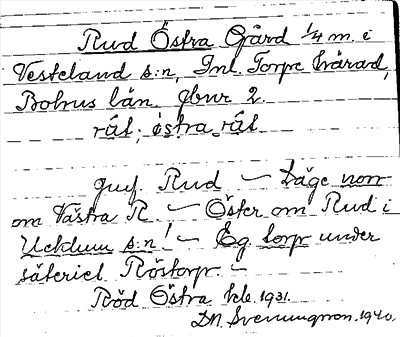 Rud Östra Gård 1/4 m. i
Vesteland s:n, Inl. Torpe härad,
Bohus län. Gbnr 2.
röl; östra röl
jmf. Rud — Läge norr
om Västra R. — Öster om Rud i
Ucklum s:n! — Eg. torp under
säteriet Röstorp. —
Röd Östra tele. 1931.
DN. Svenungsson. 1940.